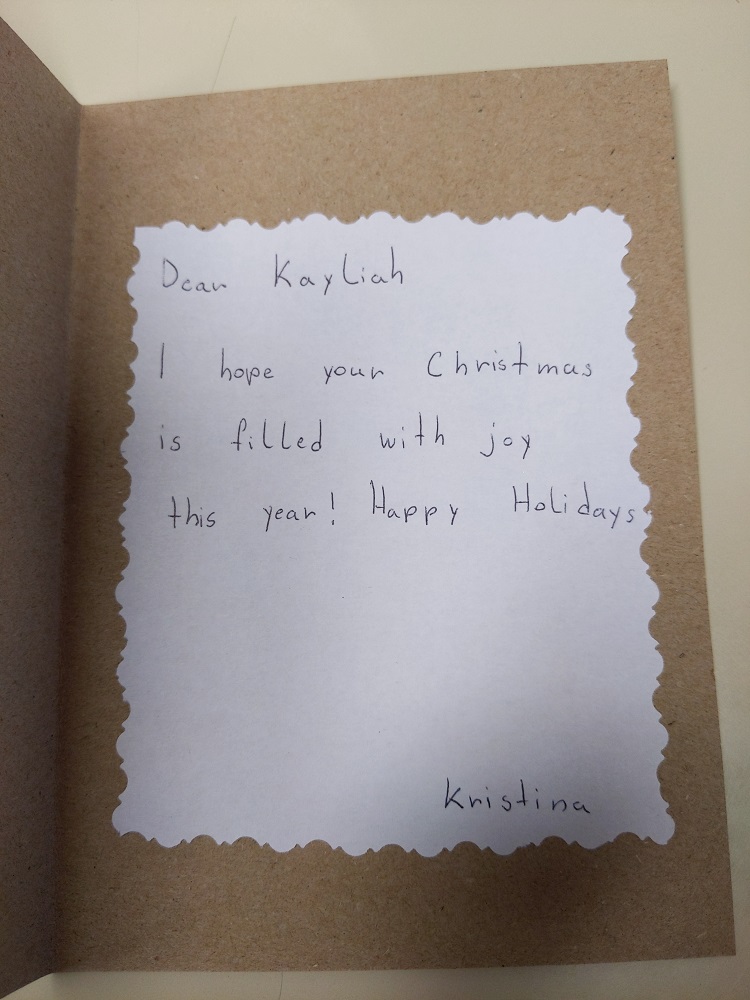 Dear Kayliah
I hope your Christmas
is filled with joy
this year! Happy Holidays
Kristina